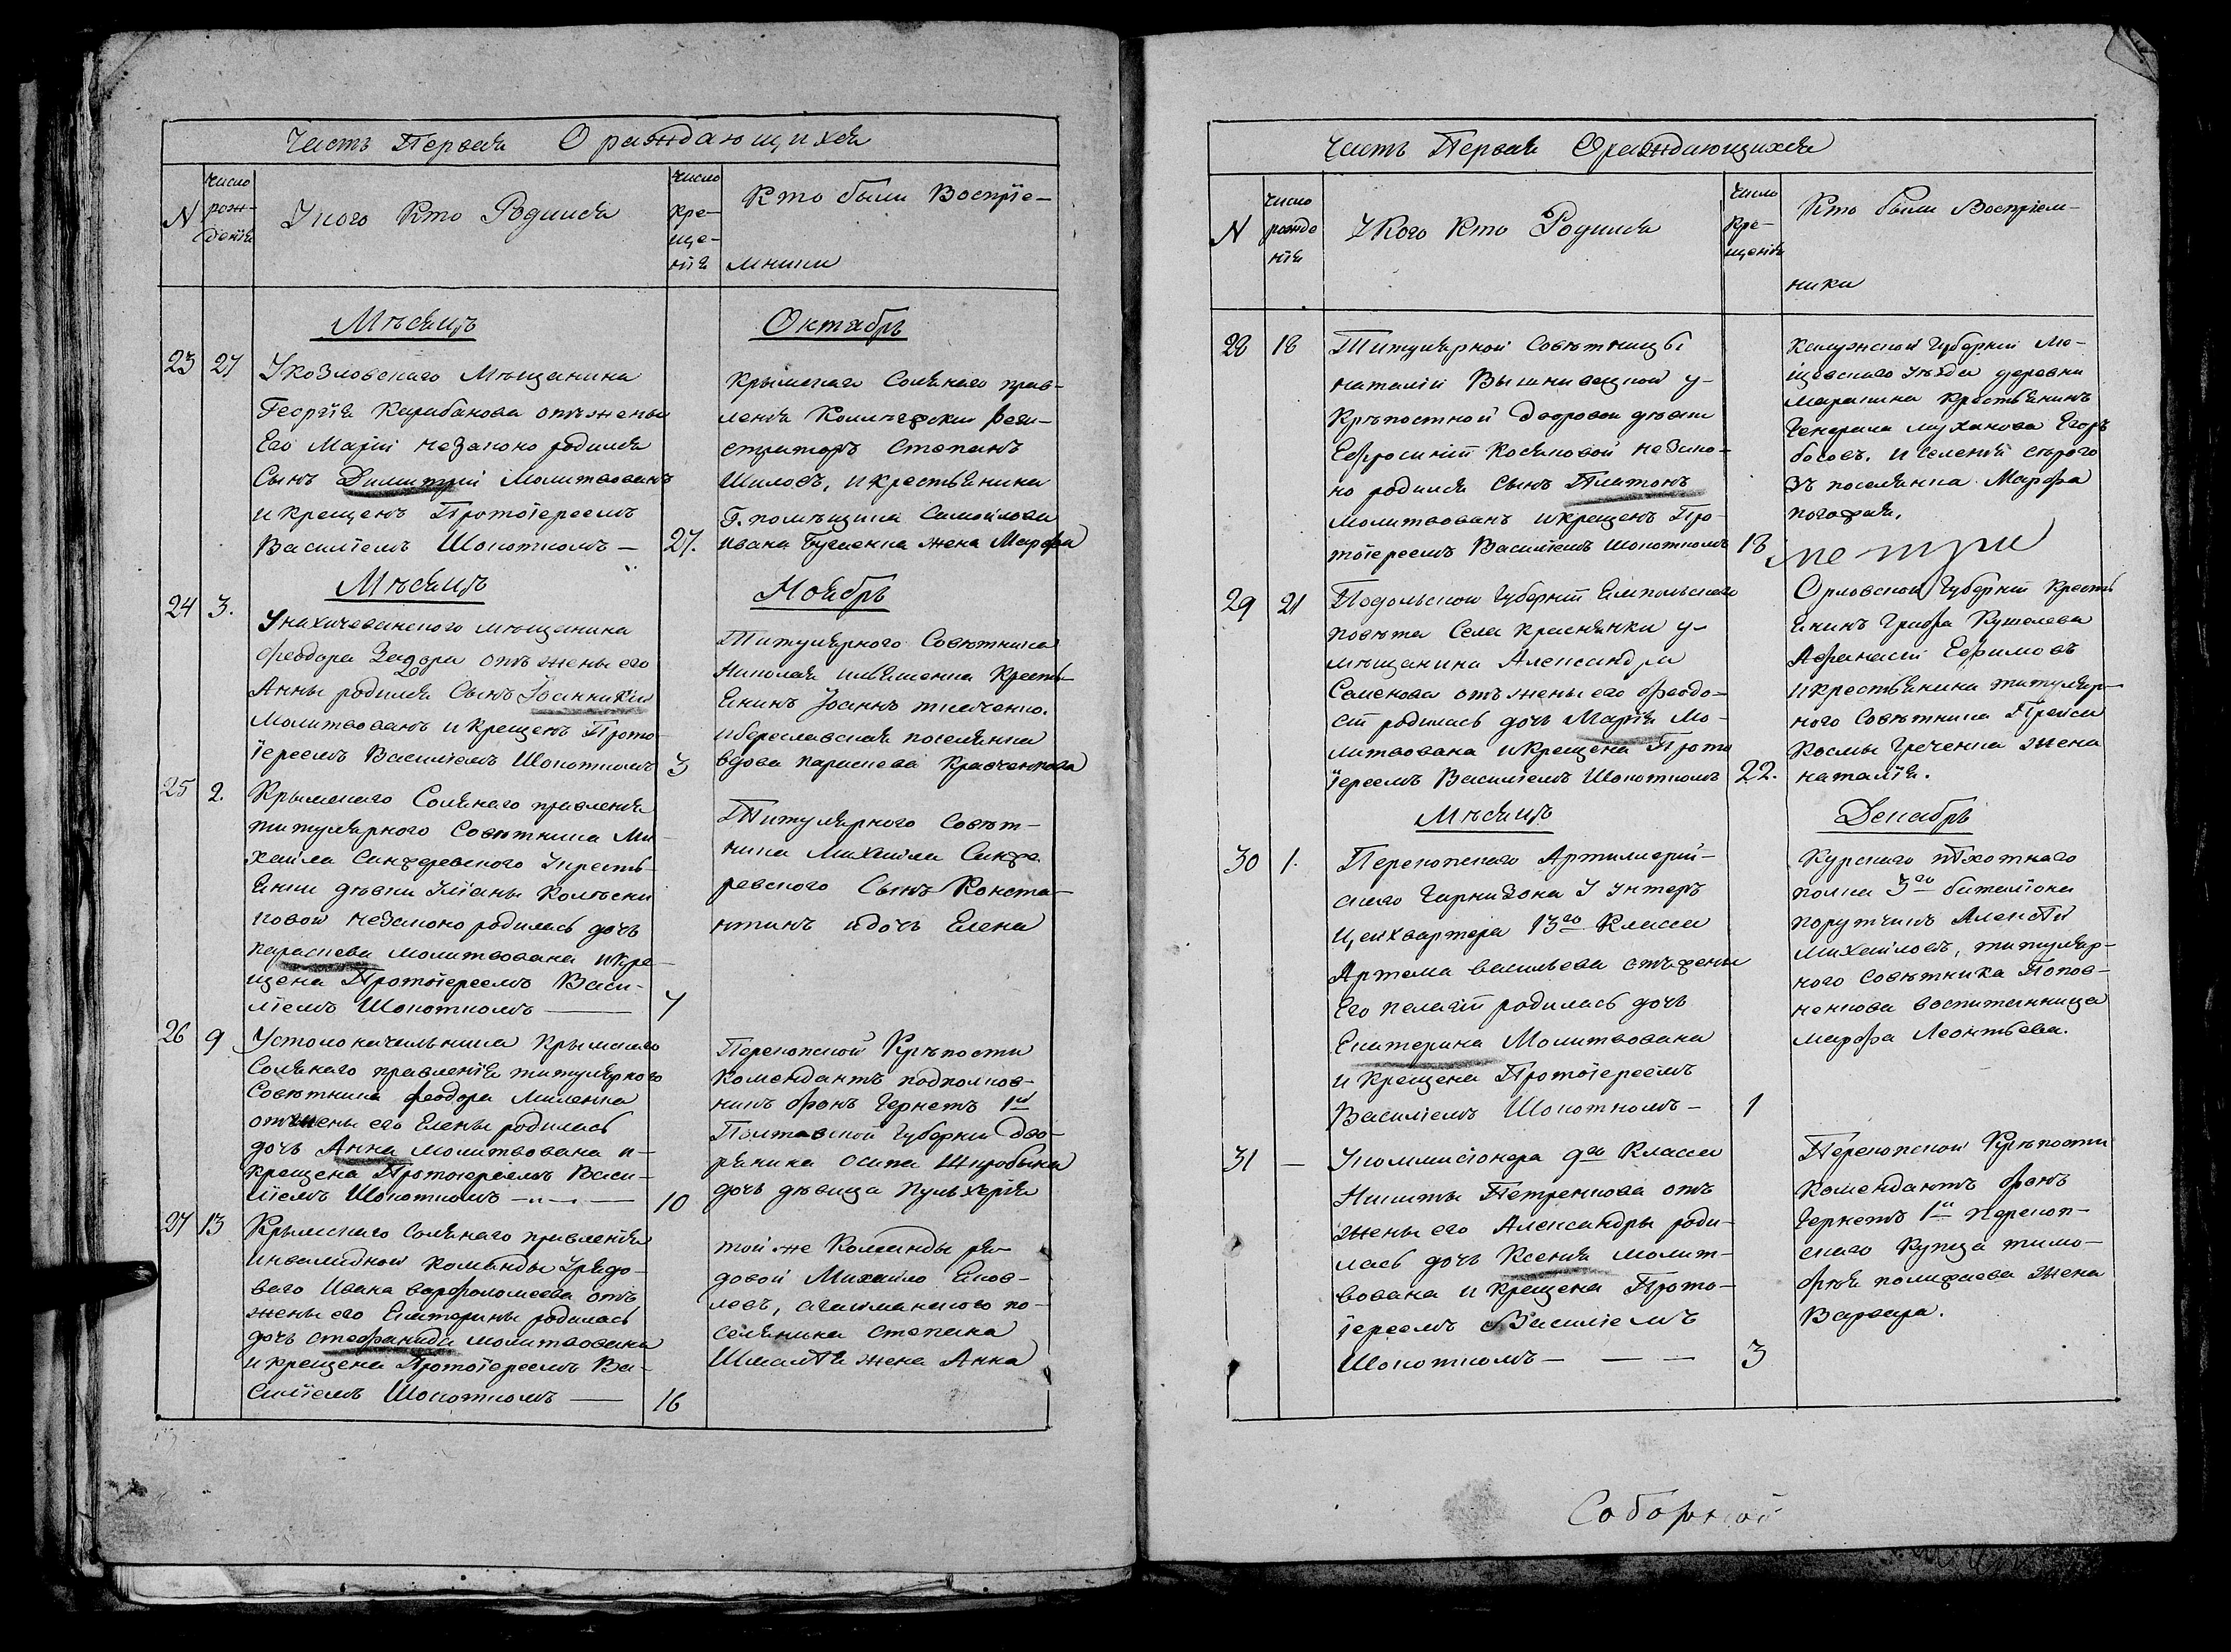 Часть Первая О раждающихся
N
число рож-
денія
У кого Кто Родился
число
кре-
ще-
нія
Кто были Воспріе-
мники
Мѣсяцъ
Октябрь
23 27
У козловскаго Мѣщанина
Георгія Карабанова отъ жены
Его Маріи незаконо родился
Сынъ Димитрій Молитвованъ
и крещенъ Протоіереемъ
Василіемъ Шокоткомъ — 27.
Крымскаго Солянаго прав-
ленія Коллежскій Реги-
страторъ Степанъ
Шиловъ, и крестьянина
Г. помѣщика Самойлова
Ивана жена Марфа
Мѣсяцъ
Ноябрь
24 3.
У нахичеванского мѣщанина
Феодора Задора отъ жены его
Анны родился Сынъ Іоанникій
Молитвованъ и Крещенъ Прото
іереемъ Василіемъ Шокоткомъ 3
Титулярного Совѣтника
Николая Ильяшенка Кресть-
янинъ Іоаннъ
и береславская поселянка
вдова параскева Кравченкова
25 2.
Крымскаго Солянаго правленія
титулярного Совѣтника Ми-
хаила Санжаревского У кресть-
янки дѣвки Уліаны Колѣсни
ковой незаконо родилась дочь
параскева молитвована и кре-
щена Протоіереемъ Васи-
ліемъ Шокоткомъ — 7
Титулярного Совѣт-
ника Михаила Санжа
ревского Сынъ Конста-
нтинъ и дочь Елена
26 9.
У столоначальника Крымскаго
Солянаго правленія титулярного
Совѣтника Феодора Миленка
отъ жены его Елены родилась
дочь Анна молитвована и-
крещена Протоіереемъ Васи-
ліемъ Шокоткомъ — 10
Перекопской Крѣпости
Комендантъ подполков-
никъ фонъ Чернетъ 1й
Полтавской Губерніи дво-
рянина Осипа
дочь дѣвица Пульхерія
27 13
Крымскаго Солянаго правленія
инвалидной команды У рядо-
ваго Ивана варфоломеева отъ
жены его Екатерины родилась
дочь Стефанида молитвована
и крещена Протоіереемъ Ва-
силіемъ Шокоткомъ — 16
той же Команды ря-
довой Михайло Яков-
левъ, по-
селянина Степана
жена Анна
Часть Первая О раждающихся
N
число
рожде
нія
У Кого Кто Родился
Число
Кре-
щенія
Кто были Воспріем-
ники
28 18
Титулярной Совѣтницы
наталіи Вышневецкой у-
Крѣпостной дворовой дѣвки
Ефросиніи Косяковой незако-
но родился Сынъ Платонъ
молитвованъ и крещенъ Про-
тоіереемъ Василіемъ Шокоткомъ 18
Калужской Губерніи Мо-
щевскаго Уѣзда деревни
Марьина крестьянинъ
Генерала Муханова Егоръ
босовъ. и селенія старого
зъ поселянка Марфа
29 21
Подольской Губерніи Ямпольскаго
повѣта Села краснянки у-
мѣщанина Александра
Семенова отъ жены его Феодо-
сіи родилась дочь Марія Мо-
литвована и крещена Прото
іереемъ Василіемъ Шокоткомъ 22.
Орловской Губерніи Кресть
янинъ Графа Кушелева
Афанасій Ефимовъ
и крестьянина титуляр-
ного Совѣтника
Космы Гречанка жена
наталія.
Мѣсяцъ
Декабрь
30 1.
Перекопскаго Артиллерій-
скаго Гарнизона У Унтеръ
Цейхвартера 13го Класса
Артема васильева отъ жены
Его пелагіи родилась дочь
Екатерина Молитвована
и Крещена Протоіереемъ
Василіемъ Шокоткомъ — 1
Курскаго пѣхотнаго
полка 3го баталіона
порутчикъ Алексѣй
Михайловъ, титуляр-
ного Совѣтника
воспитанница
марфа Леонтьева.
31 —
У коммисіонера 9го Класса
Никиты Петренкова отъ
жены его Александры роди-
лась дочь Ксенія молит-
вована и крещена Прото-
іереемъ Василіемъ
Шокоткомъ — — — 3
Перекопской Крѣпости
Комендантъ фонъ
Чернетъ 1й перекоп-
скаго Купца тимо-
фея жена
Варвара.
Соборной